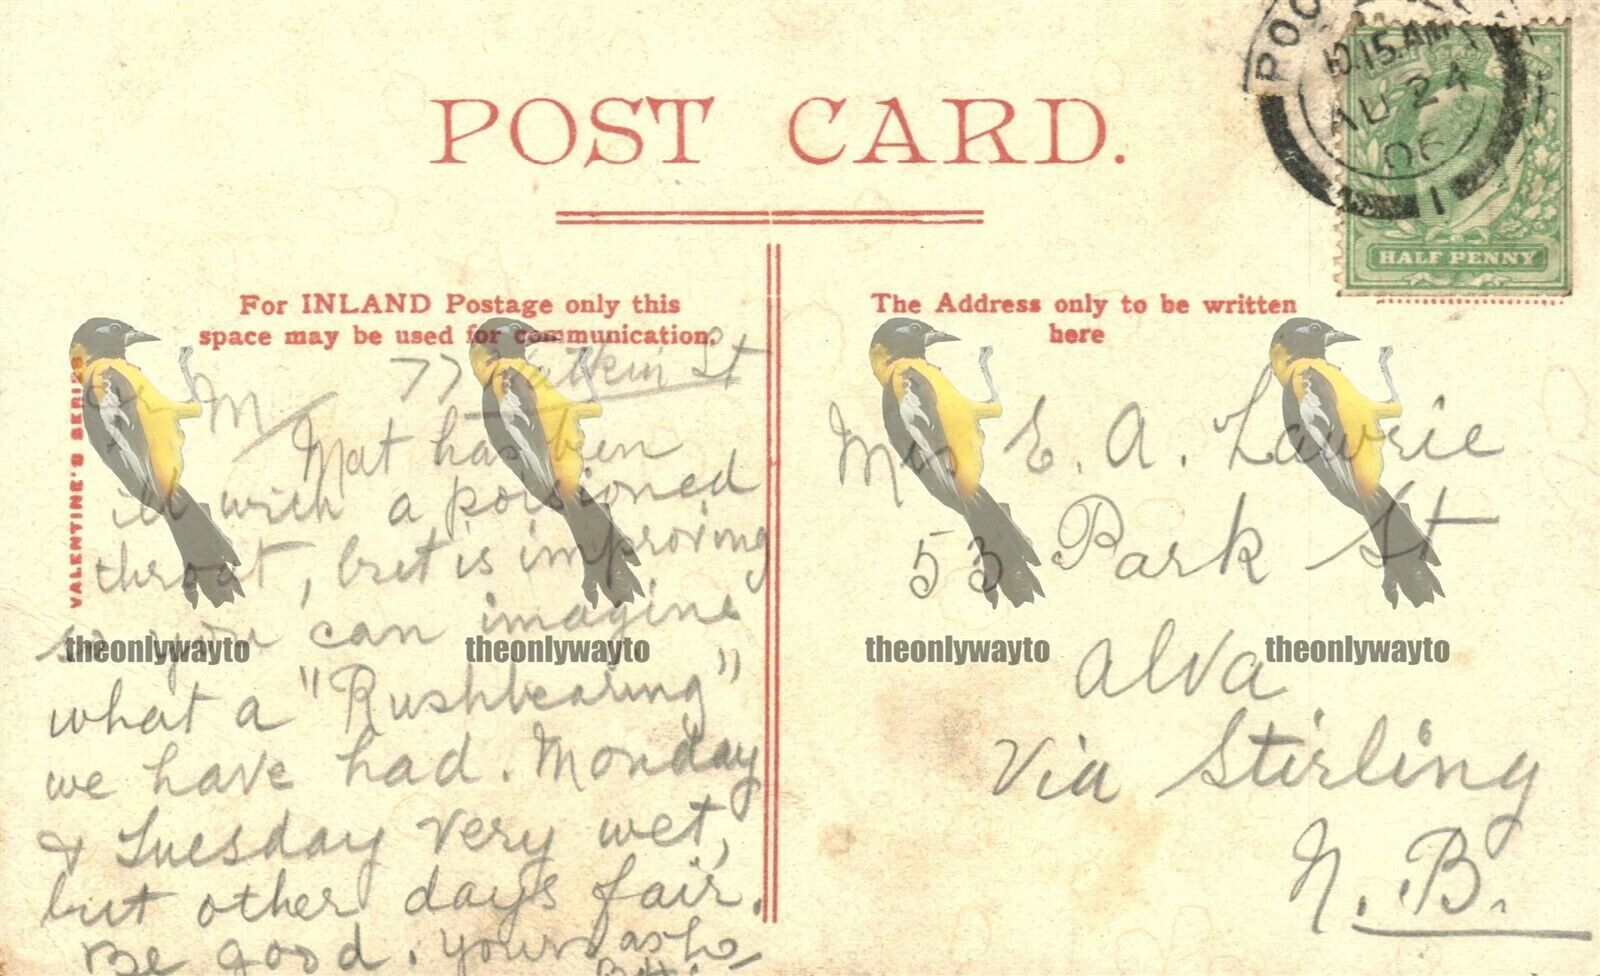 POST CARD.
10.15.AM
AU 24
06
1
HALF PENNY
For INLAND Postage only this
space may be used for communication.
The Address only to be written
here
VALENTINE'S SERIES
77 St
M
Mat has been
ill with a poisioned
throat, but is improving
so you can imagine
what a "Rushbearing"
we have had. Monday
& Tuesday very wet,
but other days fair.
Be good. Yours
E. A. Lawrie
53 Park St
Alva
Via Stirling
N.B.
theonlywayto
theonlywayto
theonlywayto
theonlywayto